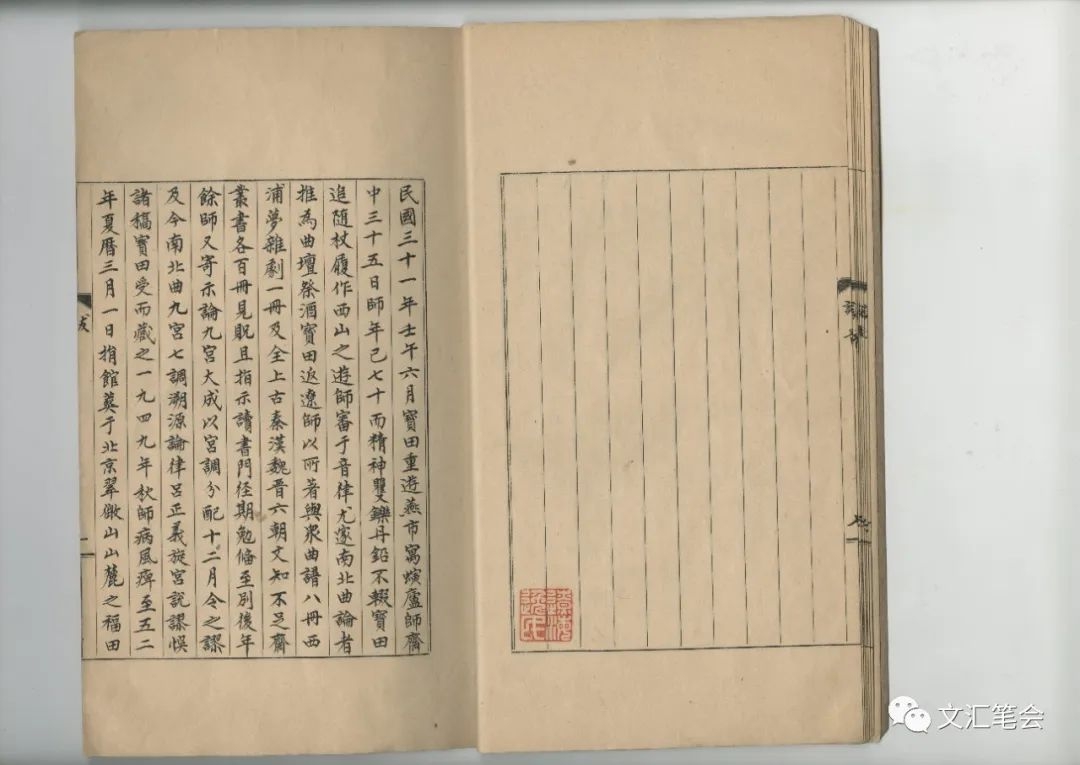 民國三十一年壬午六月寶田重遊燕市寓螾廬師齋
中三十五日師年已七十而精神矍鑠丹鉛不輟寶田
追隨杖履作西山之遊師審于音律尤邃南北曲論者
推為曲壇祭酒寶田返遼師以所著與衆曲譜八冊西
浦夢雜劇一冊及全上古秦漢魏晉六朝文知不足齋
叢書各百冊見貺且指示讀書門径期勉備至別後年
餘師又寄示論九宮大成以宮調分配十二月令之謬
及今南北曲九宮七調溯源論律呂正義旋宮說謬悞
諸稿寶田受而藏之一九四九年秋師病風痺至五二
年夏曆三月一日捐館葬于北京翠微山山麓之福田
文汇笔会